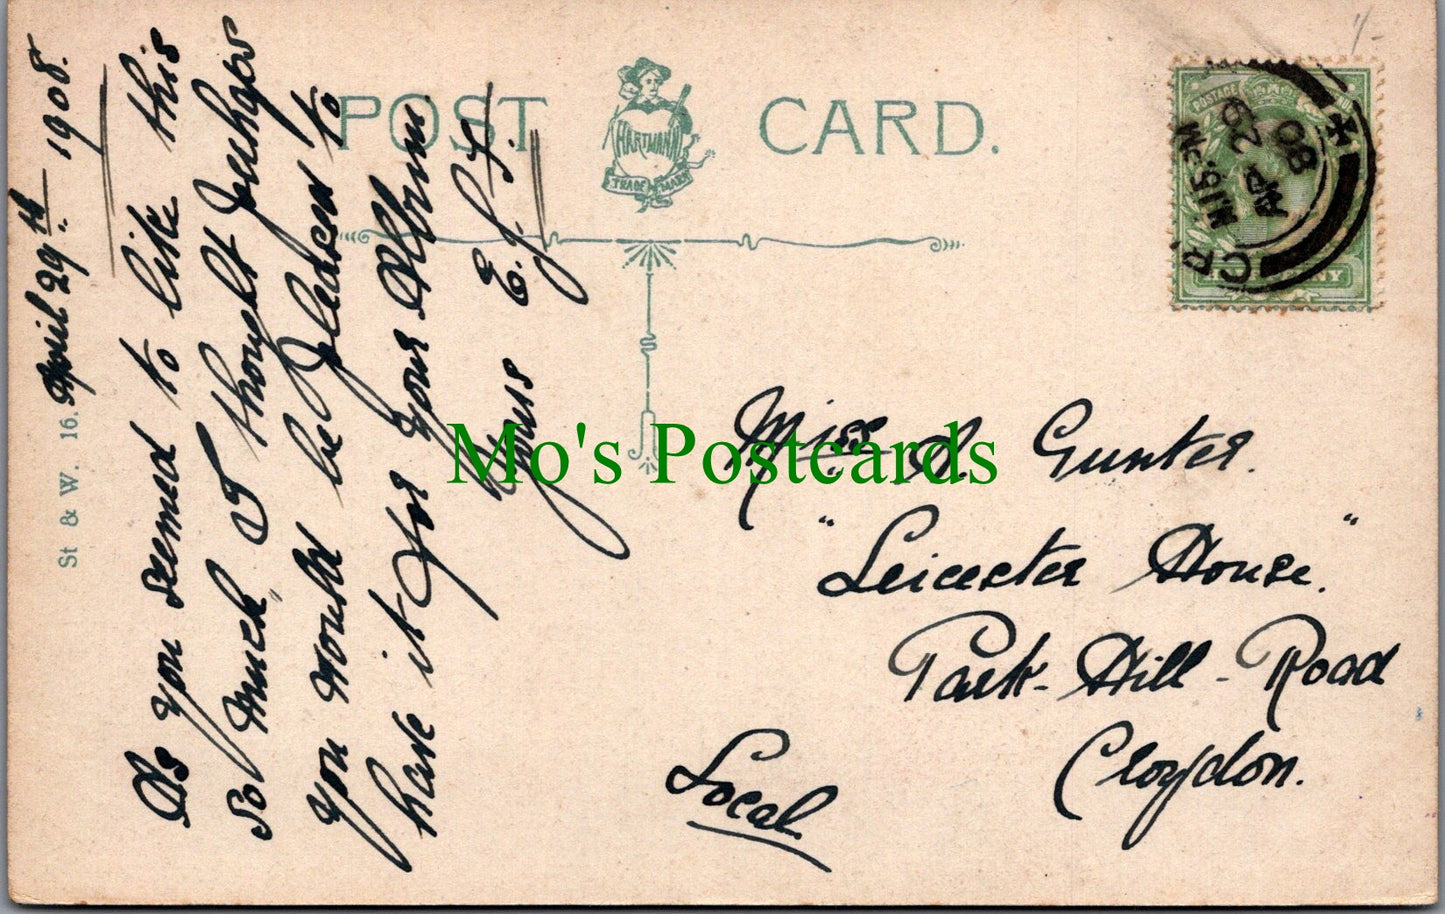 April 29th 1908.
As you seemed to like this
so much, I thought perhaps
you would be pleased to
have it for your Album
Yours E.J.J.
St & W. 16.
POST CARD.
HARTMANN
TRADE MARK
POSTAGE
CR
11.15 PM
AP 29
08
Mo's Postcards
Miss A. Gunter.
"Leicester House."
Park-Hill-Road
Croydon.
Local